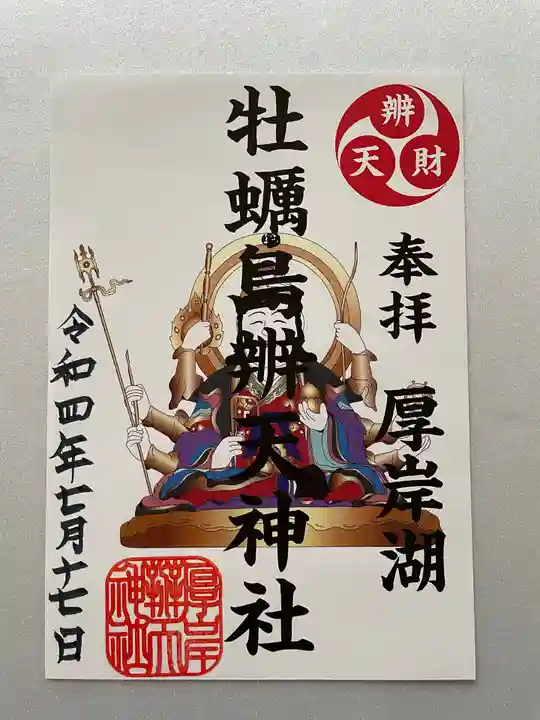 辨財天
奉拝 厚岸湖
牡蠣島辨天神社
令和四年七月十七日
厚岸
辨天
神社